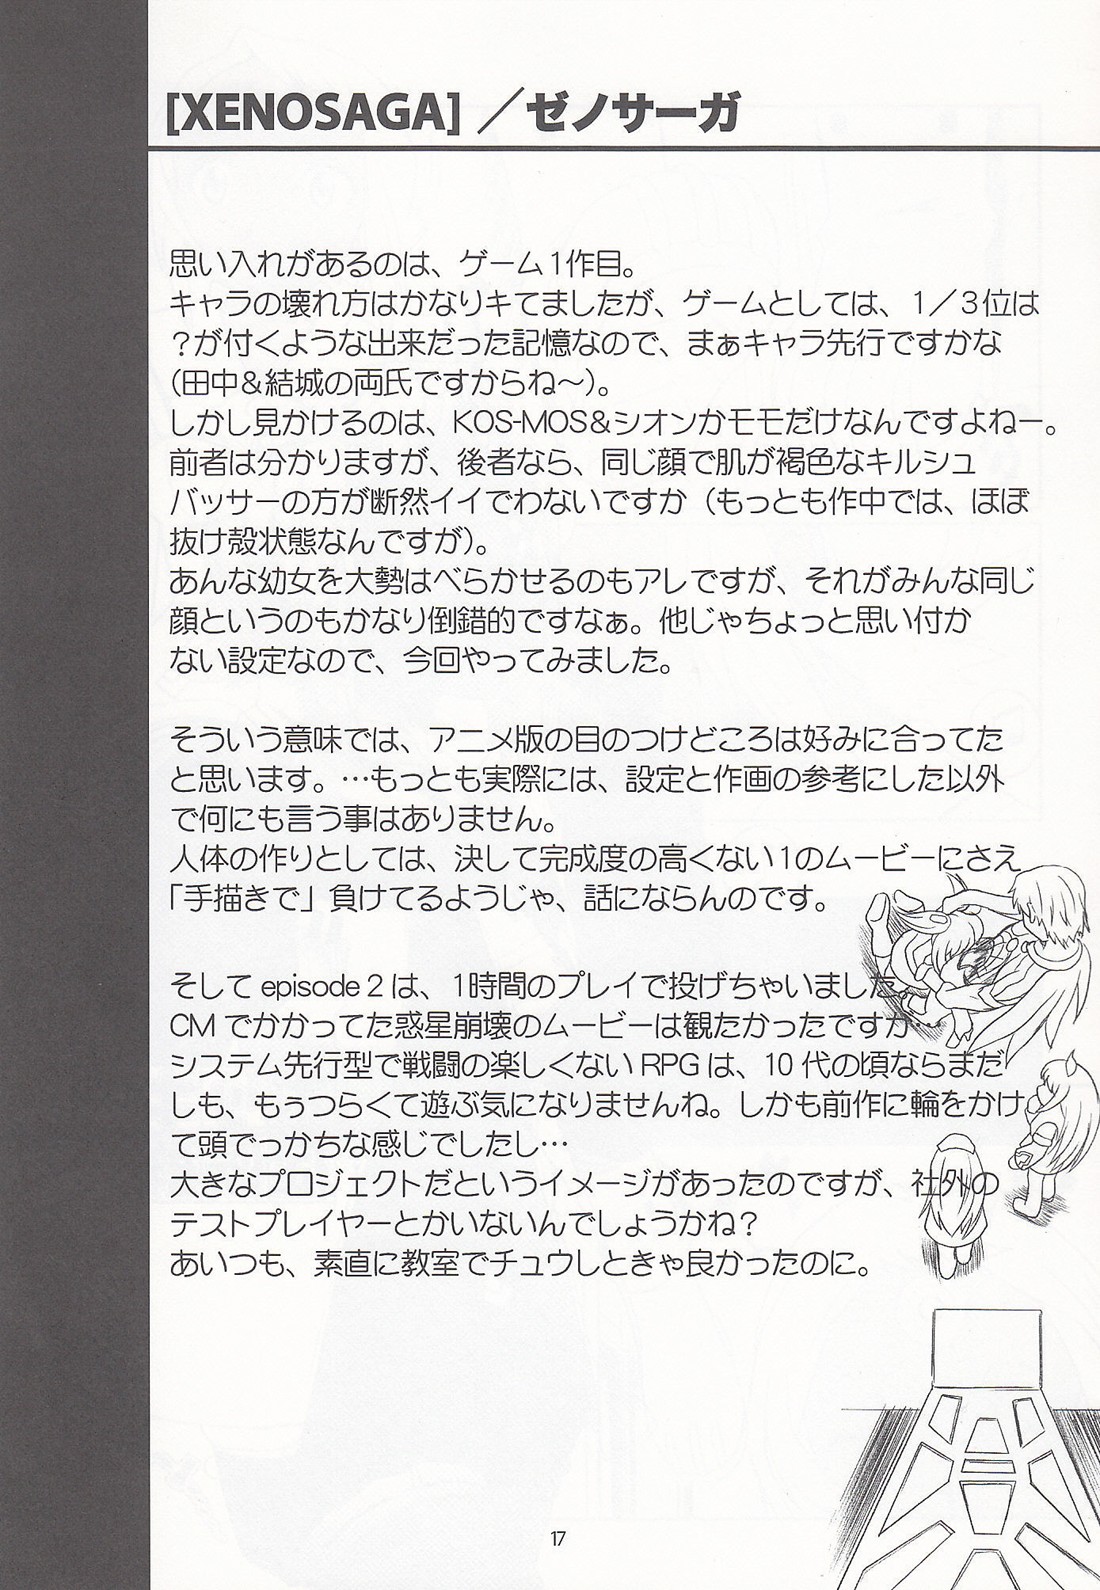 [XENOSAGA]／ゼノサーガ
思い入れがあるのは、ゲーム1作目。
キャラの壊れ方はかなりキてましたが、ゲームとしては、1／3位は
？が付くような出来だった記憶なので、まぁキャラ先行ですかな
（田中＆結城の両氏ですからね～）。
しかし見かけるのは、KOS-MOS&シオンかモモだけなんですよねー。
前者は分かりますが、後者なら、同じ顔で肌が褐色なキルシュ
バッサーの方が断然イイでわないですか（もっとも作中では、ほぼ
抜け殻状態なんですが）。
あんな幼女を大勢はべらかせるのもアレですが、それがみんな同じ
顔というのもかなり倒錯的ですなぁ。他じゃちょっと思い付か
ない設定なので、今回やってみました。
そういう意味では、アニメ版の目のつけどころは好みに合ってた
と思います。…もっとも実際には、設定と作画の参考にした以外
で何にも言う事はありません。
人体の作りとしては、決して完成度の高くない1のムービーにさえ
「手描きで」負けてるようじゃ、話にならんのです。
そして episode 2 は、1時間のプレイで投げちゃいました。
CM でかかってた惑星崩壊のムービーは観たかったですが…
システム先行型で戦闘の楽しくない RPG は、10 代の頃ならまだ
しも、もぅつらくて遊ぶ気になりませんね。しかも前作に輪をかけ
て頭でっかちな感じでしたし…
大きなプロジェクトだというイメージがあったのですが、社外の
テストプレイヤーとかいないんでしょうかね？
あいつも、素直に教室でチュウしときゃ良かったのに。
17